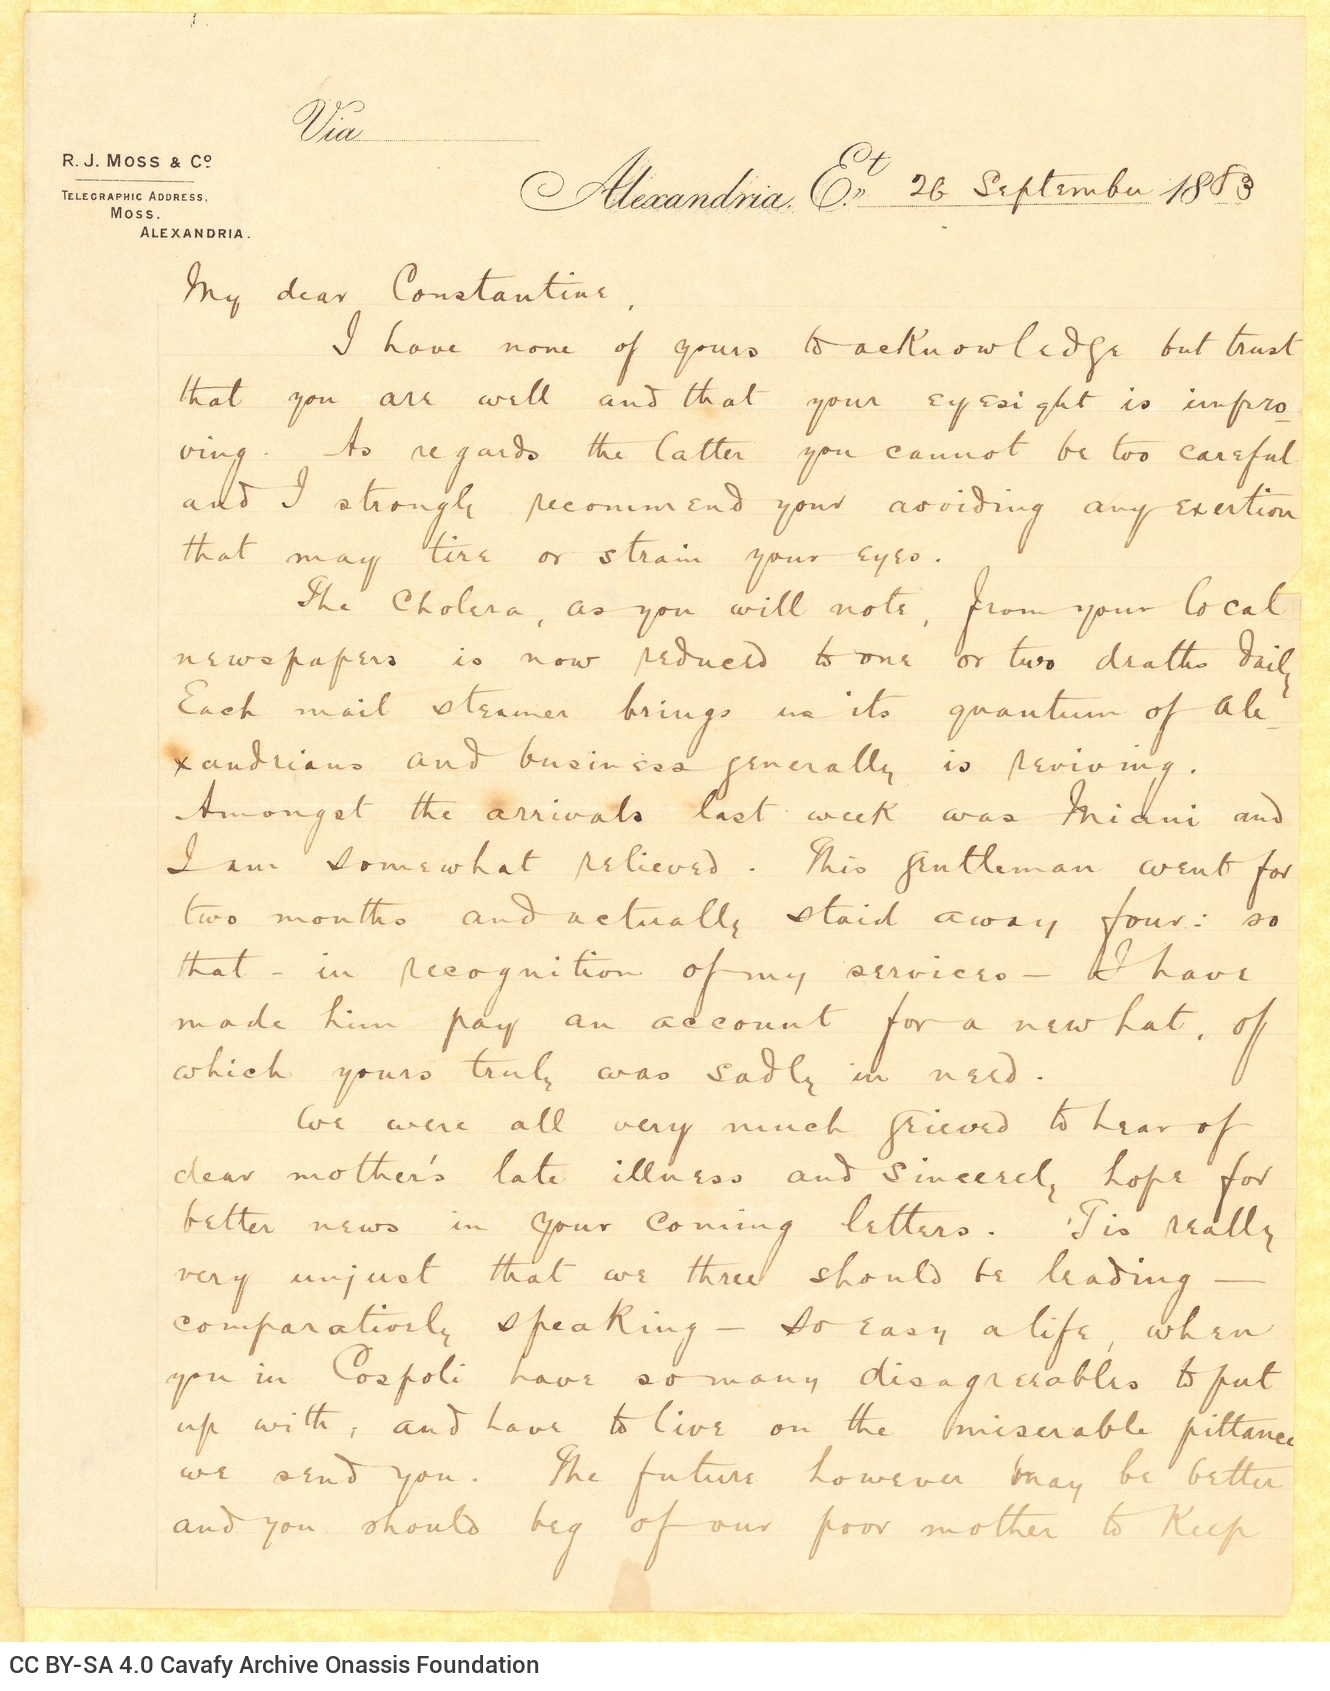 Via
R. J. Moss & Co
Telegraphic Address,
Moss.
Alexandria.
Alexandria, Et 26 September 1883
My dear Constantine,
I have none of yours to acknowledge but trust
that you are well and that your eyesight is impro-
ving. As regards the latter you cannot be too careful
and I strongly recommend your avoiding any exertion
that may tire or strain your eyes.
The Cholera, as you will note, from your local
newspapers is now reduced to one or two deaths daily
Each mail steamer brings us its quantum of Ale-
xandrians and business generally is reviving.
Amongst the arrivals last week was Miani and
I am somewhat relieved. This gentleman went for
two months and actually staid away four: so
that - in recognition of my services - I have
made him pay an account for a new hat, of
which yours truly was sadly in need.
We were all very much grieved to hear of
dear mother's late illness and sincerely hope for
better news in your coming letters. 'Tis really
very unjust that we three should be leading —
comparatively speaking — so easy a life, when
you in Cospoli have so many disagreeables to put
up with, and have to live on the miserable pittance
we send you. The future however may be better
and you should beg of our poor mother to keep
CC BY-SA 4.0 Cavafy Archive Onassis Foundation